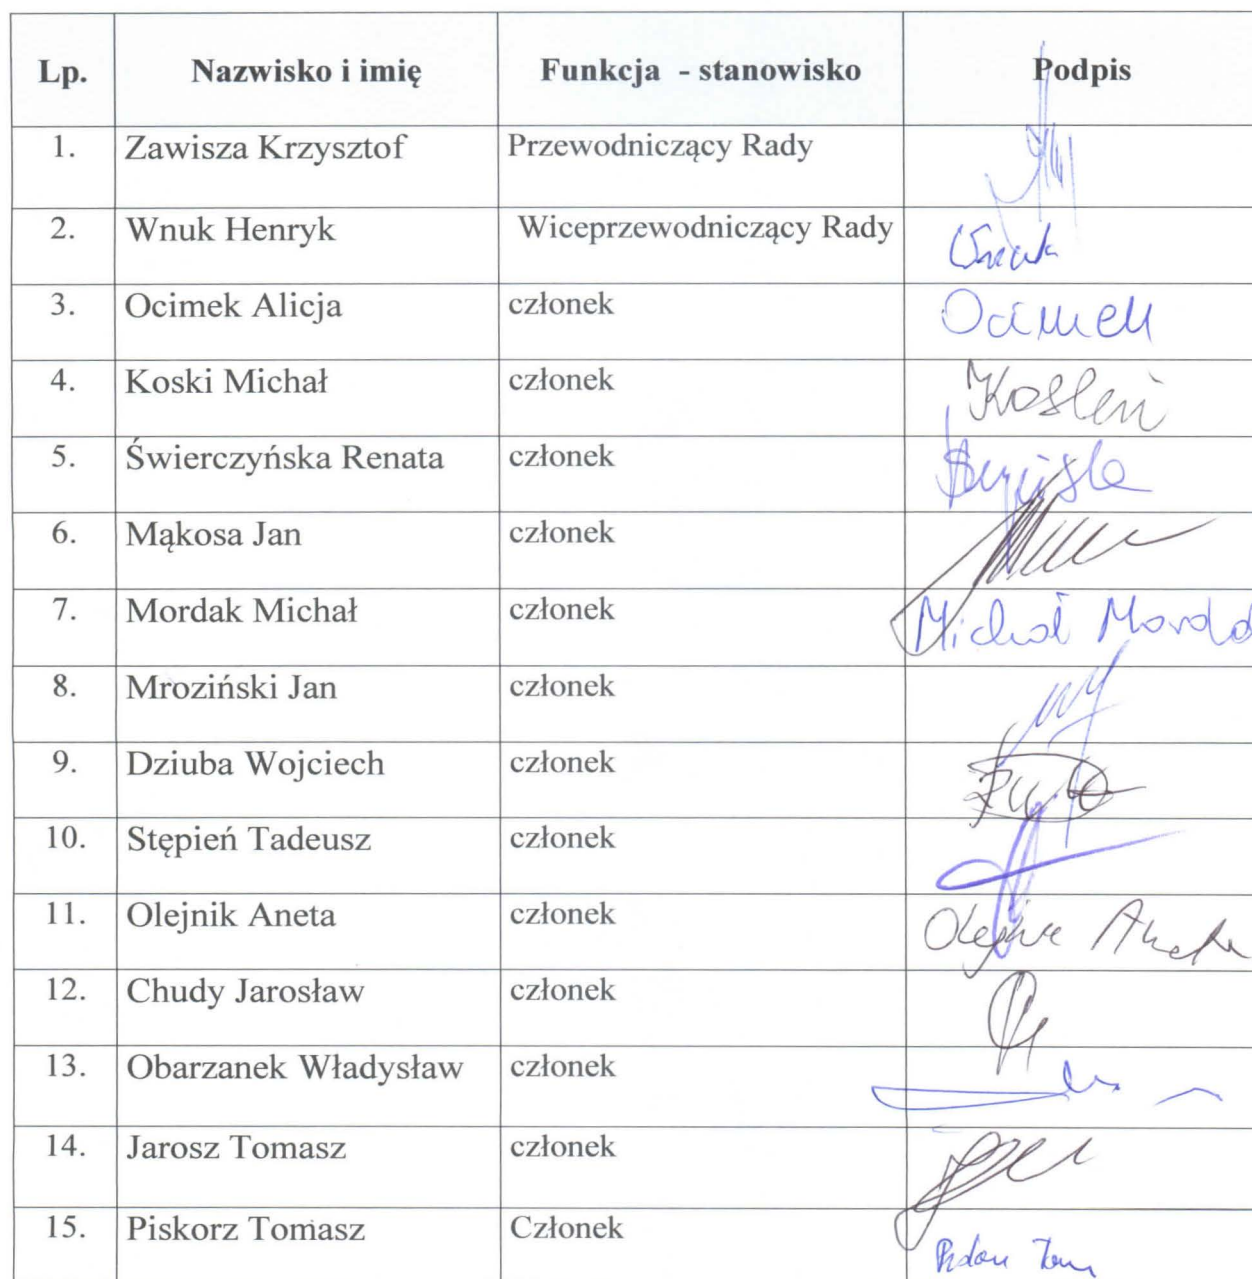 Lp. Nazwisko i imię Funkcja - stanowisko Podpis
1. Zawisza Krzysztof Przewodniczący Rady
2. Wnuk Henryk Wiceprzewodniczący Rady Wnuk
3. Ocimek Alicja członek Ocimek
4. Koski Michał członek
5. Świerczyńska Renata członek
6. Mąkosa Jan członek
7. Mordak Michał członek Michał Morda
8. Mroziński Jan członek
9. Dziuba Wojciech członek
10. Stępień Tadeusz członek
11. Olejnik Aneta członek Olejnik Aneta
12. Chudy Jarosław członek
13. Obarzanek Władysław członek
14. Jarosz Tomasz członek
15. Piskorz Tomasz Członek